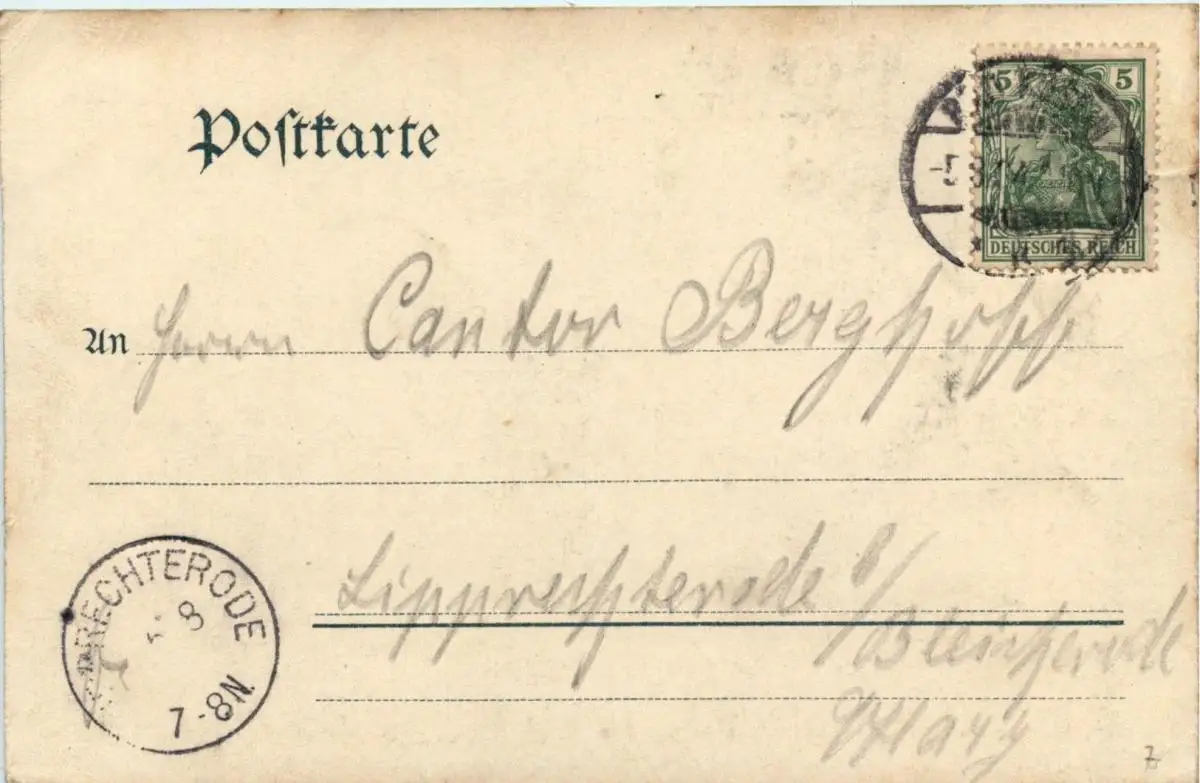 Postkarte
5 5
DEUTSCHES REICH
-5 8
An Herrn Cantor Berghoff
Lipprechterode b/
Bleicherode
a/Harz
RECHTERODE
8
7-8N.
7